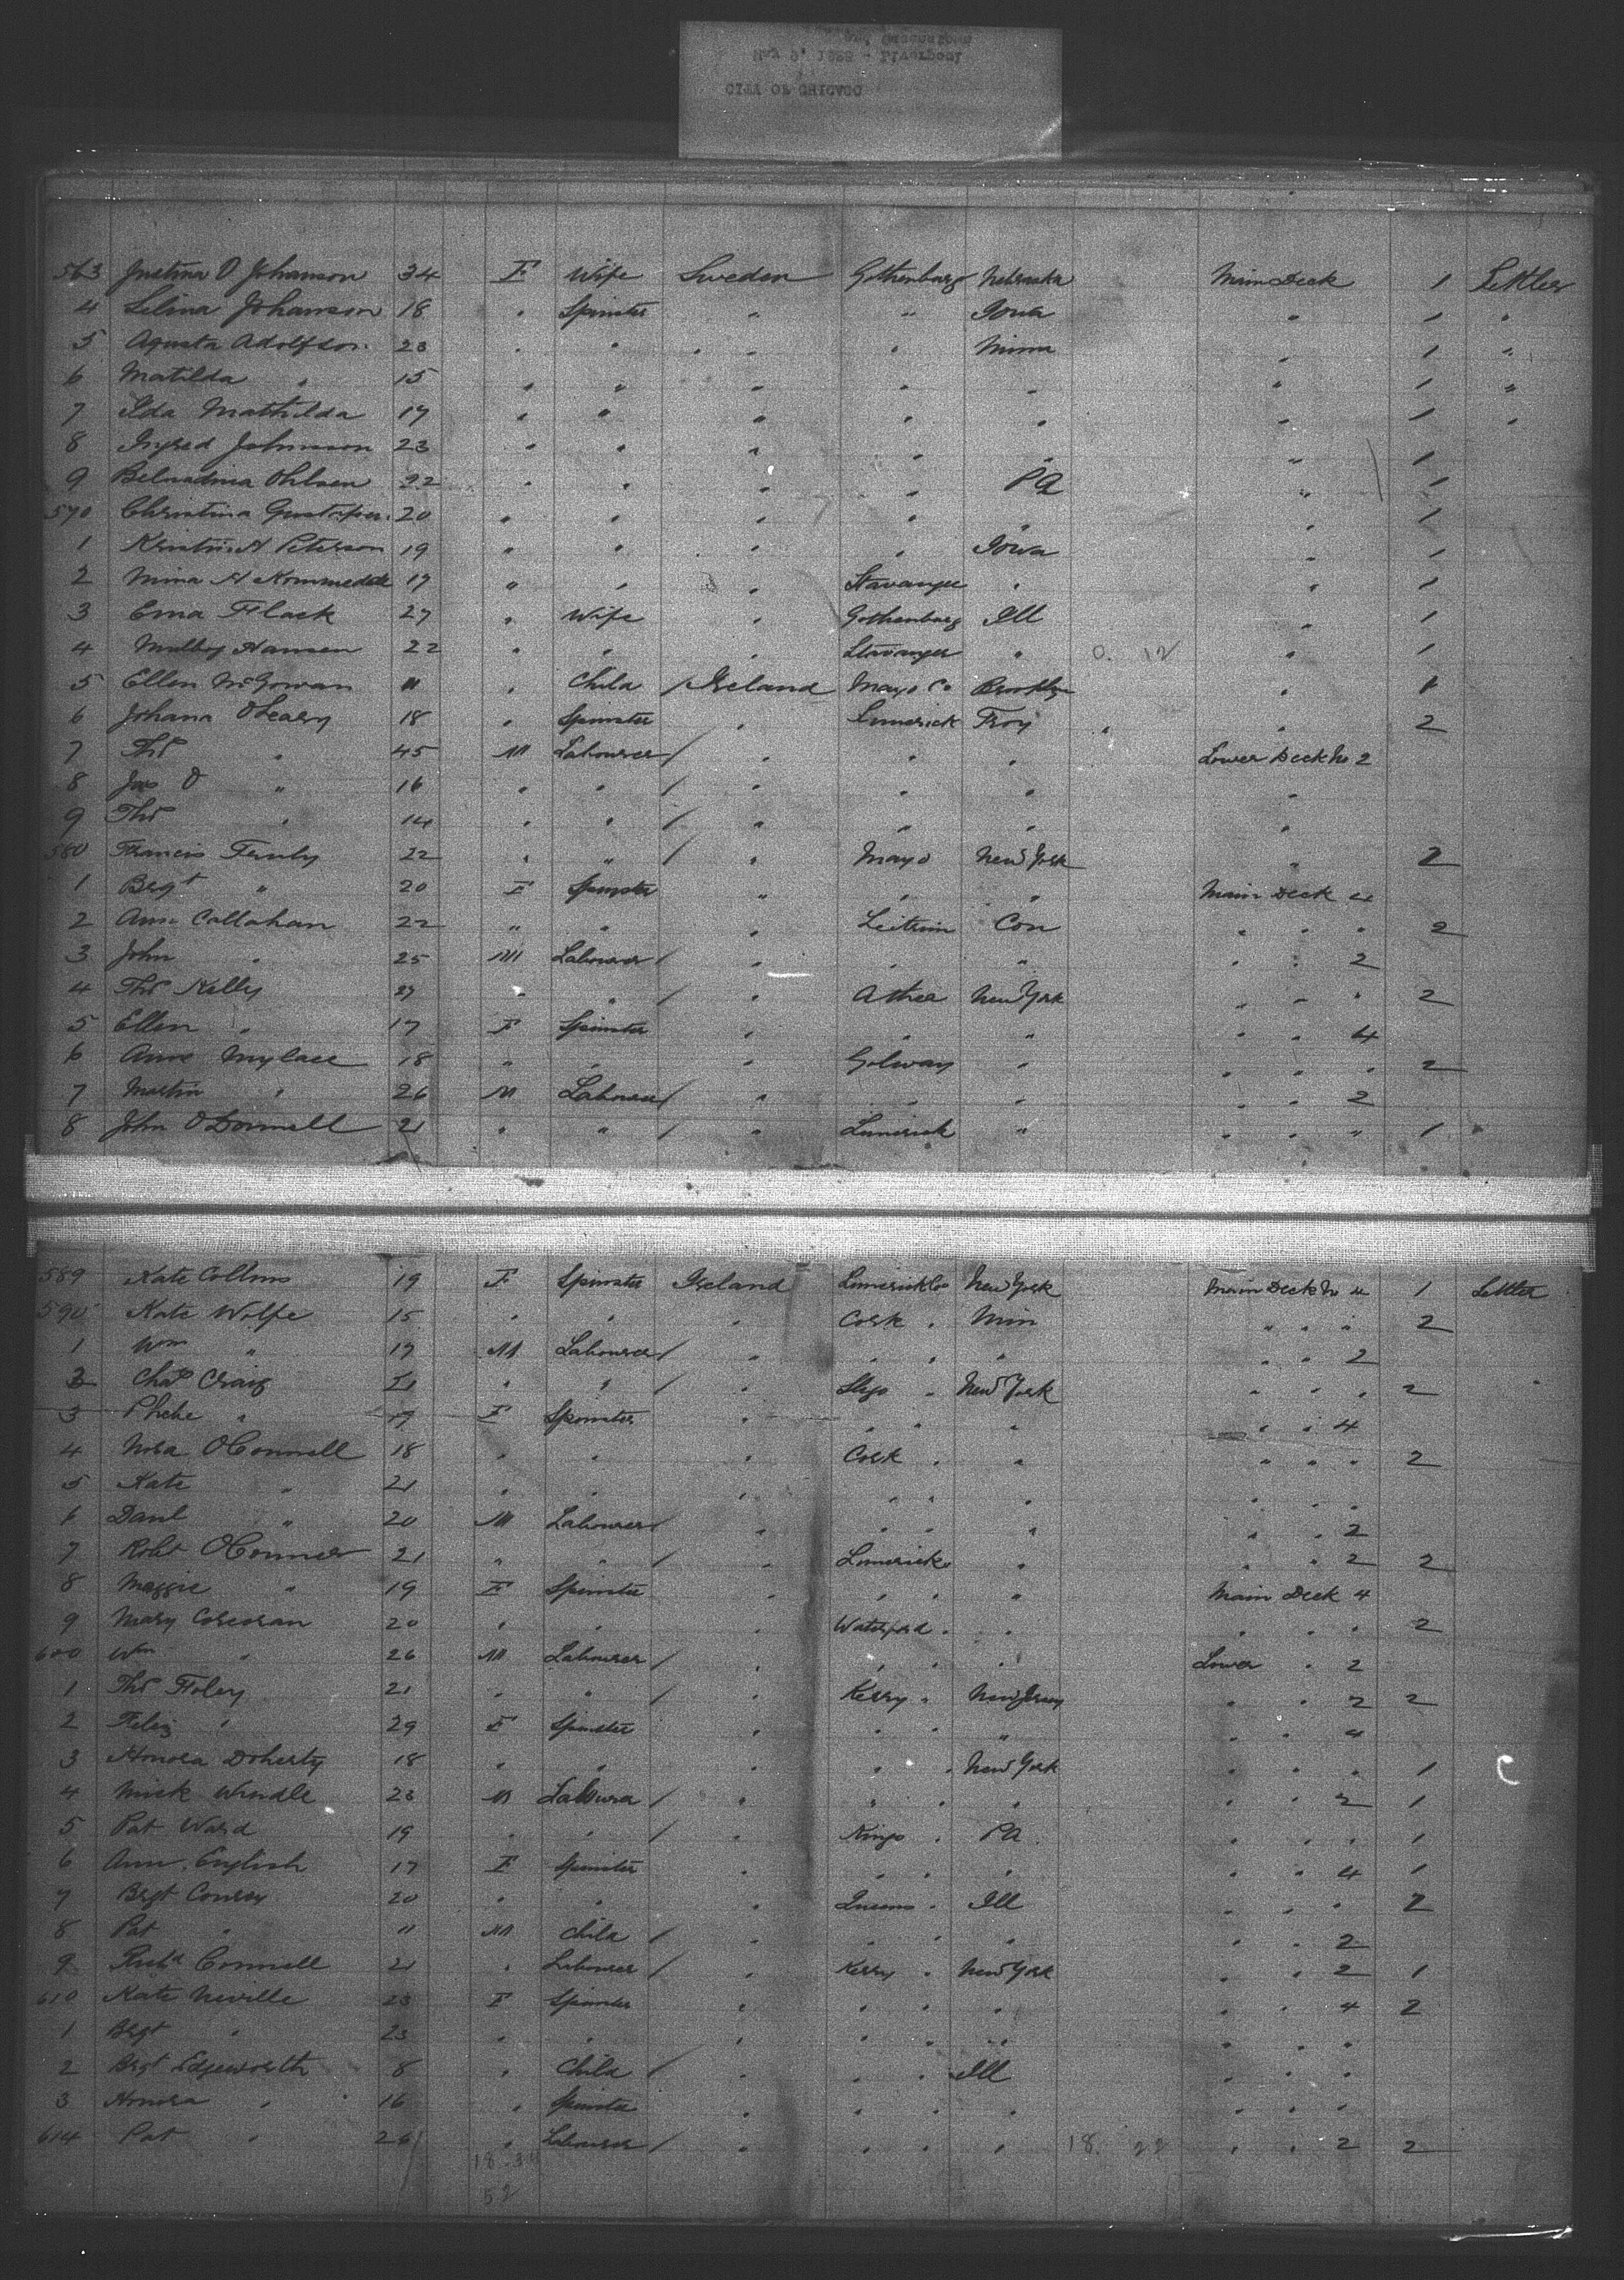 CITY OF CHICAGO
May 9, 1888 - Liverpool
563 Justina O Johanson 34 F Wife Sweden Gothenburg Nebraska Main Deck 1 Settler
4 Selina Johanson 18 " Spinster " " Iowa " 1 "
5 Agusta Adolfson 23 " " " " Minna " 1 "
6 Matilda " 15 " " " " " " 1 "
7 Ilda Mathilda 17 " " " " " " 1 "
8 Ingred Johnson 23 " " " " " " 1
9 Ohlsen 22 " " " " PA " 1
570 Christina 20 " " " " " " 1
1 Peterson 19 " " " " Iowa " 1
2 Mina A 17 " " " Stavanger " " 1
3 Ema Flack 27 " Wife " Gothenburg Ill " 1
4 Hansen 22 " " " Stavanger " 0. 12 " 1
5 Ellen McGowan 11 " Child / Ireland Mayo Co Brooklyn " 1
6 Johana O Leary 18 " Spinster " Limerick Troy " 2
7 Thos " 45 M Labourer / " " " Lower Deck No 2
8 Jas O " 16 " " / " " " "
9 Thos " 14 " " / " " " "
580 Francis 22 " " / " Mayo New York " 2
1 Brgt " 20 F Spinster " " " Main Deck 4
2 Ann Callahan 22 " " " Leitrim Con " " " 2
3 John " 25 M Labourer / " " " " " 2
4 Thos Kelly 27 " " / " New York " " " 2
5 Ellen " 17 F Spinster " " " " " 4
6 Anne 18 " " " Galway " " " " 2
7 Martin " 26 M Labourer / " " " " " 2
8 John O Donnell 21 " " / " Limerick " " " " 1
589 Kate Collins 19 F Spinster Ireland Limerick Co New York Main Deck No 4 1 Settler
590 Kate Wolfe 15 " " " Cork " Min " " " 2
1 Wm " 17 M Labourer / " " " " " " 2
2 Chas Craig 21 " " / " Sligo " New York " " " 2
3 Phebe " 19 F Spinster " " " " " " 4
4 Nora O Connell 18 " " " Cork " " " " " 2
5 Kate " 21 " " " " " " " " "
6 Danl " 20 M Labourer / " " " " " " 2
7 Robt O Connor 21 " " / " Limerick " " " " 2 2
8 Maggie " 19 F Spinster " " " " Main Deck 4
9 Mary Corcoran 20 " " " Waterford " " " " " 2
600 Wm " 26 M Labourer / " " " " Lower " 2
1 Thos Foley 21 " " / " Kerry " New Jersey " " 2 2
2 " 29 F Spinster " " " " " " 4
3 Honora Doherty 18 " " " " " New York " " " 1
4 Mick Windle 23 M Labourer / " " " " " " 2 1
5 Pat Ward 19 " " / " Kings " PA " " " 1
6 Ann English 17 F Spinster " " " " " " 4 1
7 Brgt Conroy 20 " " " Queens " Ill " " " 2
8 Pat " 11 M Child / " " " " " " 2
9 Richd Connell 21 " Labourer / " Kerry " New York " " 2 1
610 Kate Neville 23 F Spinster " " " " " " 4 2
1 Brgt " 23 " " " " " " " " "
2 Brgt Edgeworth 8 " Child / " " " Ill " " "
3 Honora " 16 " Spinster " " " " " " "
614 Pat " 26 " Labourer / " " " " 18. 22 " " 2 2
52